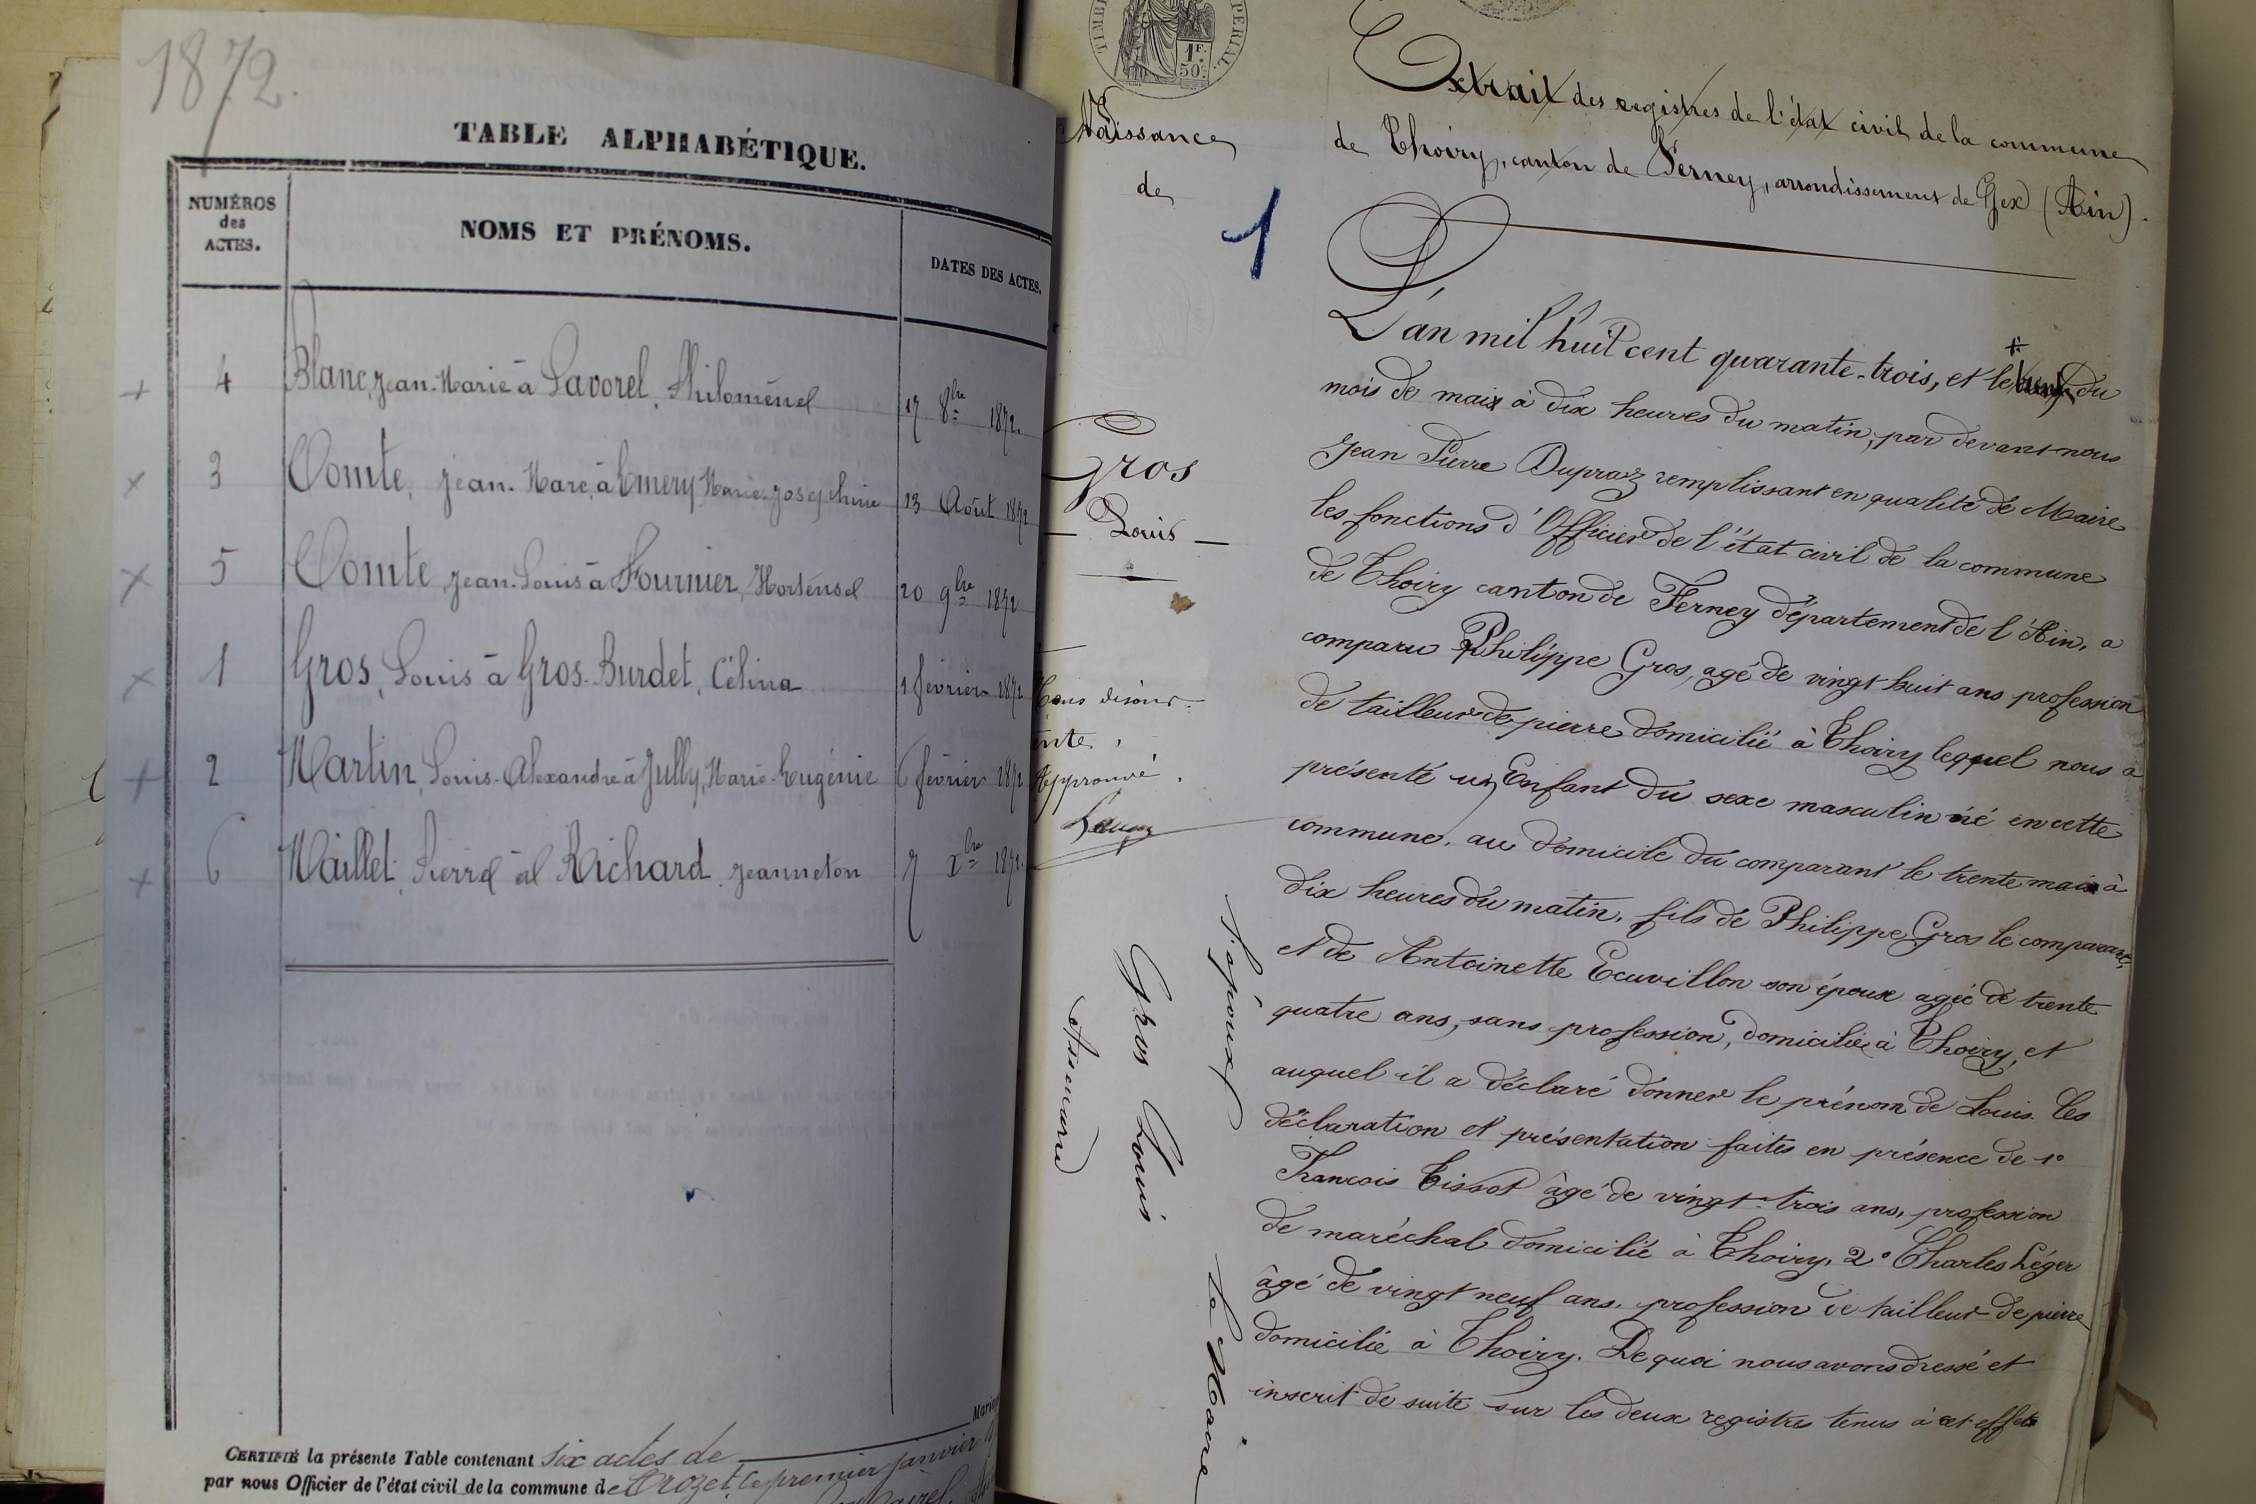 1872.
TABLE ALPHABÉTIQUE.
NUMÉROS des ACTES.
NOMS ET PRÉNOMS.
DATES DES ACTES.
+ 4 Blanc, Jean-Marie à Lavorel, Philomène 17 8bre 1872.
x 3 Comte, Jean-Marc, à Emery Marie-Josephine 13 Août 1872
x 5 Comte, Jean-Louis à Fournier, Hortense 20 9bre 1872
x 1 Gros, Louis à Gros-Burdet, Célina 1 février 1872
+ 2 Martin, Louis-Alexandre à Jully, Marie-Eugénie 6 février 1872
+ 6 Maillet, Pierre à Richard, Jeanneton 7 Xbre 1872.
CERTIFIÉ la présente Table contenant six actes de
par nous Officier de l'état civil de la commune de Crozet, le premier janvier
TIMBRE IMPERIAL.
1 F. 50 c.
Naissance
de
1
Gros
Louis
Approuvé.
L'époux
Gros Louis
Le Maire
Extrait des registres de l'état civil de la commune
de Thoiry, canton de Ferney, arrondissement de Gex (Ain).
L'an mil huit cent quarante-trois, et le du
mois de mai à dix heures du matin, par devant nous
Jean Pierre Dupraz remplissant en qualité de Maire
les fonctions d'Officier de l'état civil de la commune
de Thoiry canton de Ferney département de l'Ain, a
comparu Philippe Gros, agé de vingt huit ans profession
de tailleur de pierre domicilié à Thoiry lequel nous a
présenté un Enfant du sexe masculin né en cette
commune, au domicile du comparant le trente mai à
dix heures du matin, fils de Philippe Gros le comparant,
et de Antoinette Ecuvillon son épouse agée de trente
quatre ans, sans profession, domiciliée à Thoiry, et
auquel il a déclaré donner le prénom de Louis. Les
déclaration et présentation faites en présence de 1°
Francois Tissot âgé de vingt-trois ans, profession
de maréchal domicilié à Thoiry, 2° Charles Léger
âgé de vingt neuf ans, profession de tailleur de pierre
domicilié à Thoiry. De quoi nous avons dressé et
inscrit de suite sur les deux registres tenus à cet effet